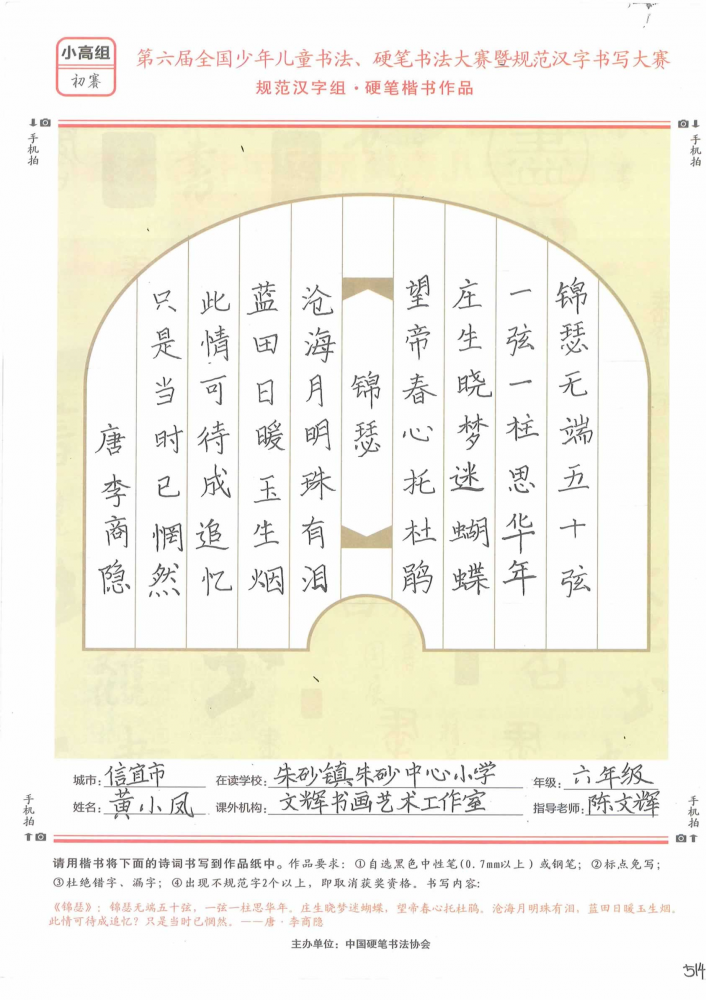 小高组
初赛
第六届全国少年儿童书法、硬笔书法大赛暨规范汉字书写大赛
规范汉字组·硬笔楷书作品
手机拍
手机拍
锦瑟无端五十弦
一弦一柱思华年
庄生晓梦迷蝴蝶
望帝春心托杜鹃
锦瑟
沧海月明珠有泪
蓝田日暖玉生烟
此情可待成追忆
只是当时已惘然
唐李商隐
手机拍
手机拍
城市:信宜市 在读学校:朱砂镇朱砂中心小学 年级:六年级
姓名:黄小凤 课外机构:文辉书画艺术工作室 指导老师:陈文辉
请用楷书将下面的诗词书写到作品纸中。作品要求:①自选黑色中性笔(0.7mm以上)或钢笔;②标点免写;
③杜绝错字、漏字;④出现不规范字2个以上,即取消获奖资格。书写内容:
《锦瑟》:锦瑟无端五十弦,一弦一柱思华年。庄生晓梦迷蝴蝶,望帝春心托杜鹃。沧海月明珠有泪,蓝田日暖玉生烟。
此情可待成追忆?只是当时已惘然。——唐·李商隐
主办单位:中国硬笔书法协会
514